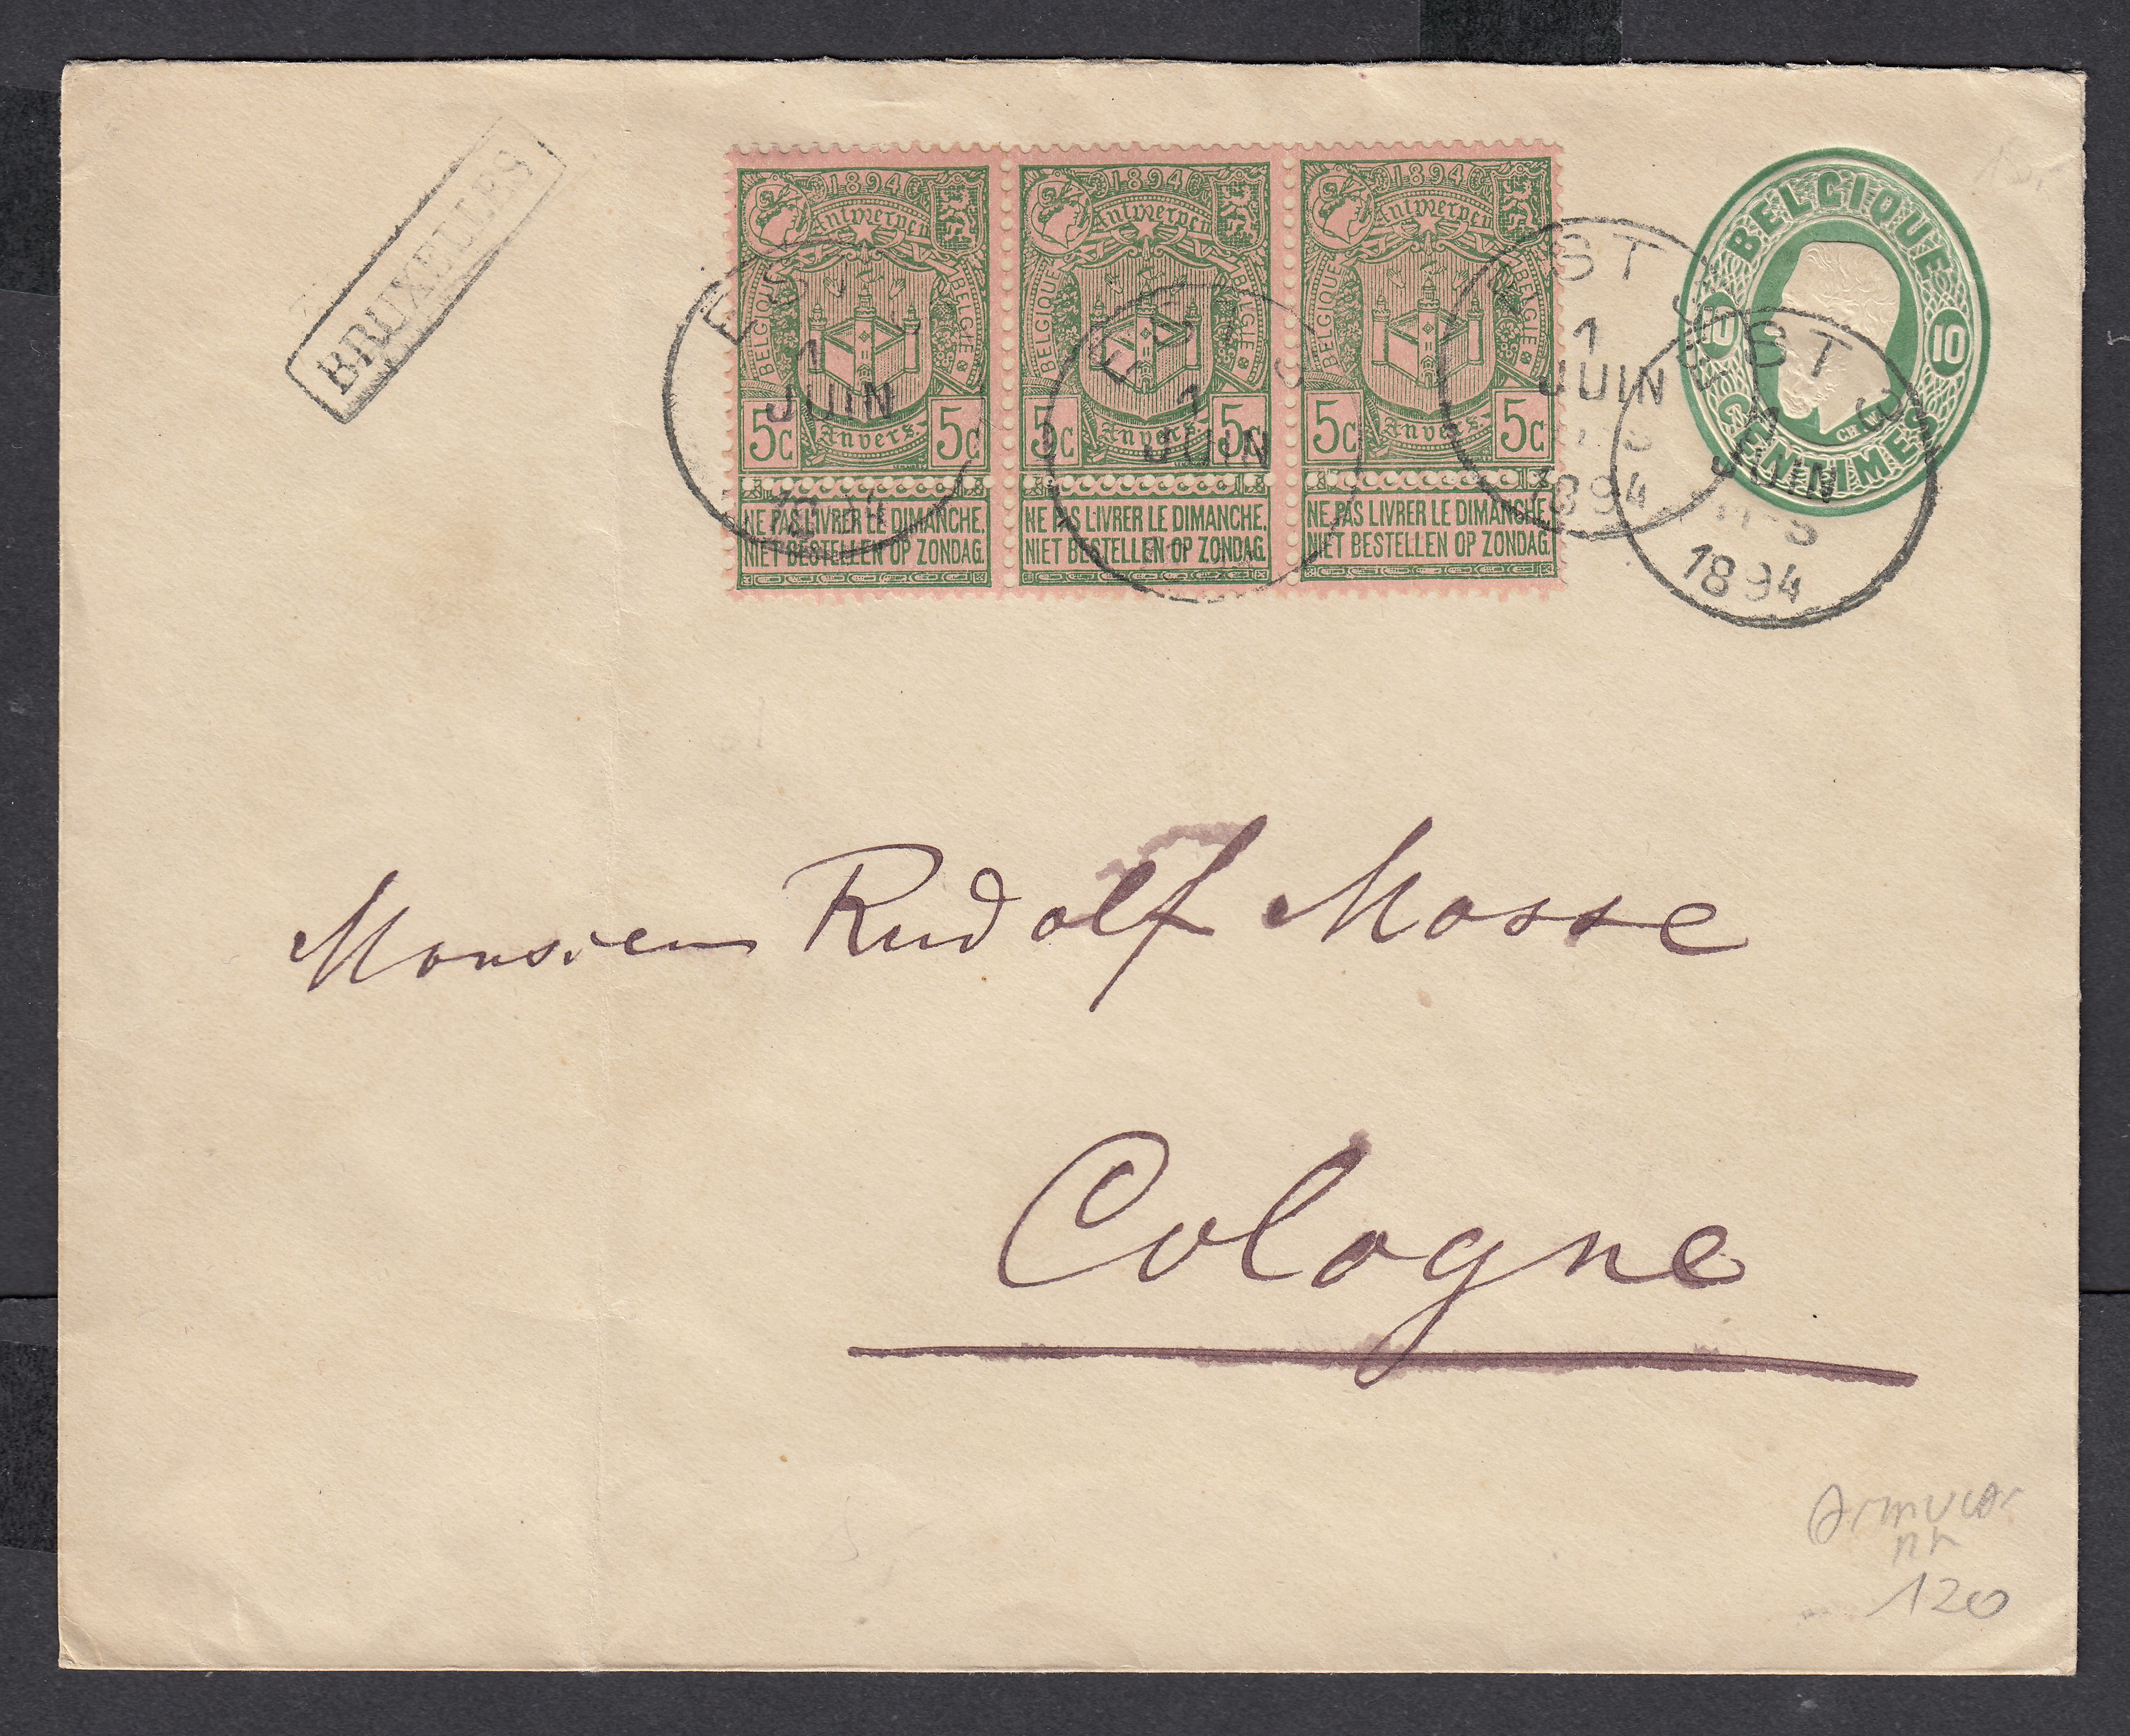 BRUXELLES
1894
Antwerpen
BELGIQUE
BELGIË
5c
Anvers
5c
NE PAS LIVRER LE DIMANCHE.
NIET BESTELLEN OP ZONDAG.
1894
Antwerpen
BELGIQUE
BELGIË
5c
Anvers
5c
NE PAS LIVRER LE DIMANCHE.
NIET BESTELLEN OP ZONDAG.
1894
Antwerpen
BELGIQUE
BELGIË
5c
Anvers
5c
NE PAS LIVRER LE DIMANCHE.
NIET BESTELLEN OP ZONDAG.
BELGIQUE
10
10
CENTIMES
1
JUIN
1894
1
JUIN
EST 3
1
JUIN
1894
EST 3
1
JUIN
1894
Monsieur Rudolf Mosse
Cologne
120